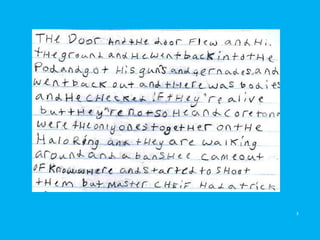 THE DOOR And tHE door FLew and Hi.
tHe ground and He went back into tHe
Pod and got His guns and gernades, and
went back out and tHere was bodies
and He CHecked iF tHey're alive
but tHey're not so He and Coretona
were tHe only ones together on tHe
Halo Ring and tHey are walking
around and a bansHee came out
oF Knowwhere and started to sHoot
tHem but Master CHeif Had a trick